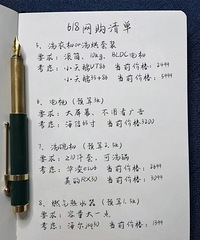 618网购清单
5、洗衣机or洗烘套装
要求：滚筒、10kg、BLDC电机
考虑：小天鹅V786 当前价格：2699
小天鹅35+86 当前价格：5499
6、电视（预算3k）
要求：大屏幕、不用看广告
考虑：海信65寸 当前价格3200
7、洗碗机（预算3k）
要求：≥10件套、可洗锅
考虑： 当前价格：2699
美的RX30 当前价格：3099
8、燃气热水器（预算1.5k）
要求：容量大一点
考虑：海尔 当前价格：1399